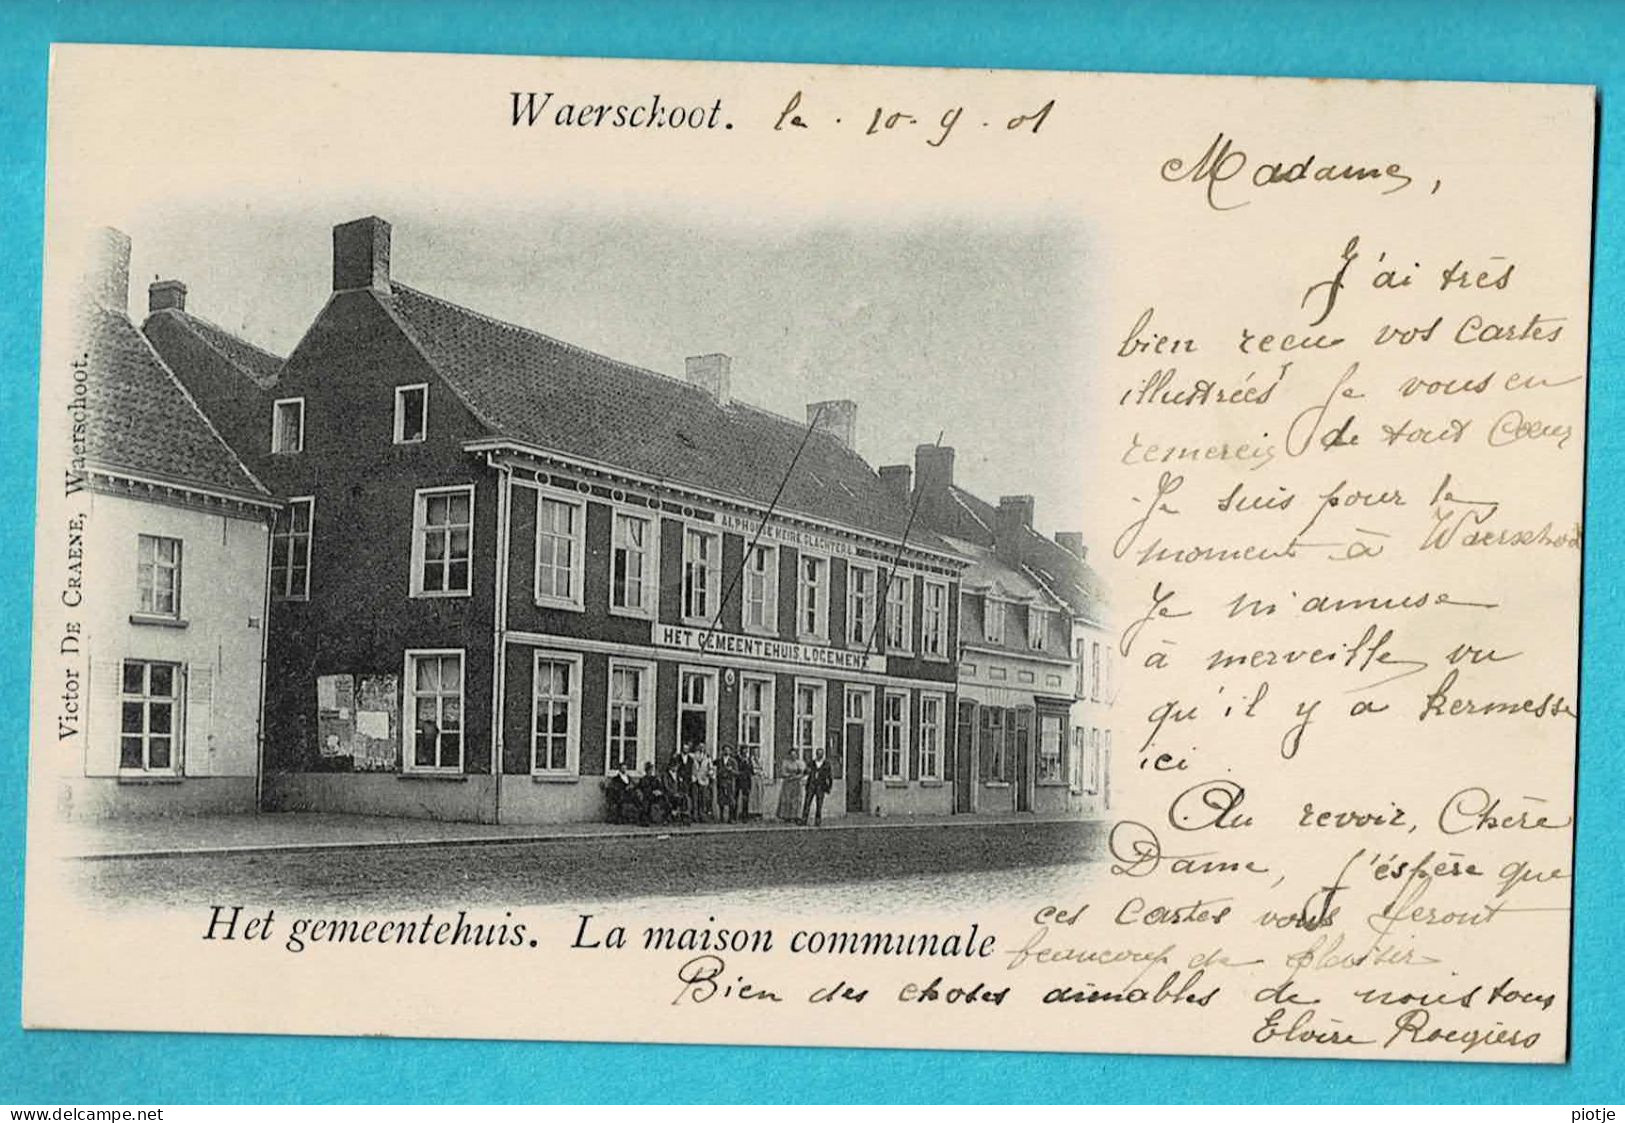 Waerschoot. le . 10 - 9 . 01
Madame,
J'ai très
bien recu vos cartes
illustrées Je vous en
remercie de tout cœur
Je suis pour le
moment à Waerschoot
Je m'amuse
à merveille vu
qu'il y a kermesse
ici
Au revoir, Chère
Dame, j'éspère que
ces cartes vous feront
beaucoup de plaisir
Bien des choses aimables de nous tous
Elvire Roegiers
Victor De Craene, Waerschoot.
ALPHONSE HEIRE SLACHTERE
HET GEMEENTEHUIS, LOGEMENT
Het gemeentehuis. La maison communale
delcampe.net
piotje